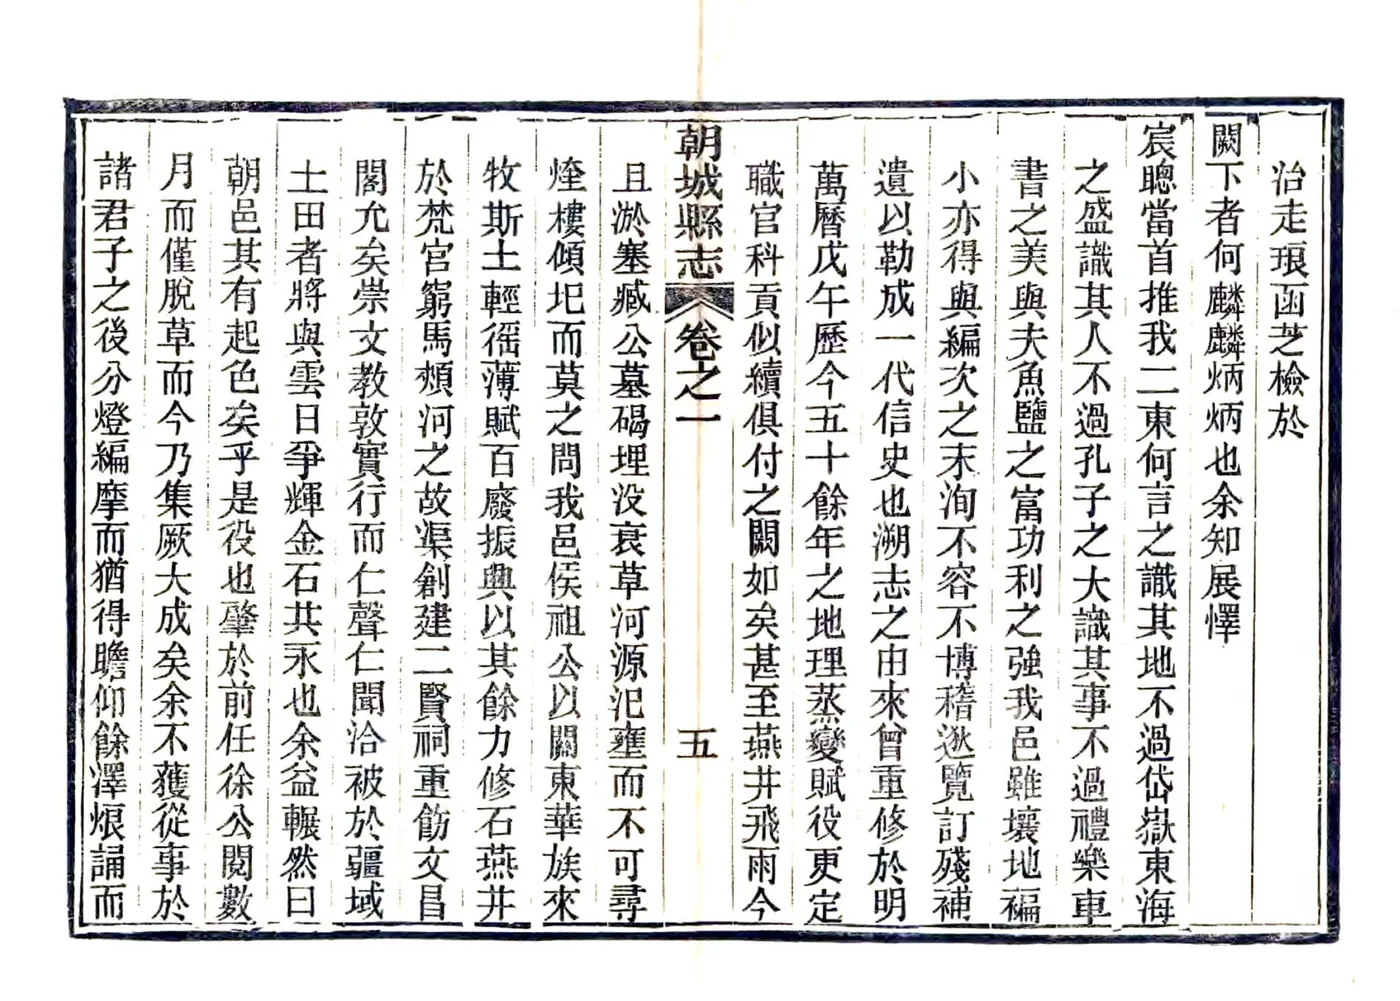 治走琅函芝檢於
闕下者何麟麟炳炳也余知展懌
宸聰當首推我二東何言之識其地不過岱嶽東海
之盛識其人不過孔子之大識其事不過禮樂車
書之美與夫魚鹽之富功利之強我邑雖壤地褊
小亦得與編次之末洵不容不博稽逖覽訂殘補
遺以勒成一代信史也溯志之由來曾重修於明
萬曆戊午歷今五十餘年之地理蒸變賦役更定
職官科貢似續俱付之闕如矣甚至燕井飛雨今
朝城縣志 卷之一 五
且淤塞臧公墓碣埋没衰草河源汜壅而不可尋
煙樓傾圯而莫之問我邑侯祖公以關東華族來
牧斯土輕徭薄賦百廢振興以其餘力修石燕井
於梵宫窮馬頰河之故渠創建二賢祠重飭文昌
閣允矣崇文教敦實行而仁聲仁聞洽被於疆域
土田者將與雲日爭輝金石共永也余益輾然曰
朝邑其有起色矣乎是役也肇於前任徐公閱數
月而僅脫草而今乃集厥大成矣余不獲從事於
諸君子之後分燈編摩而猶得瞻仰餘澤烺誦而